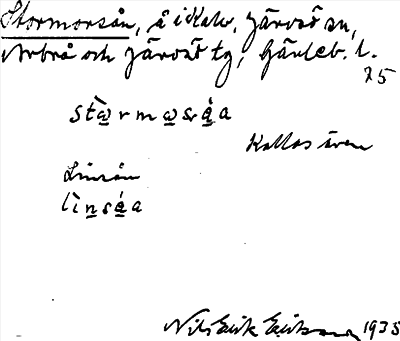 Stormorsån, å i Kalv, Järvsö sn,
Arbrå och Järvsö tg, Gävleb. l.
25
stòrmosáa
Kallas även
Linsån
lìnsáa
Nils Erik Eriksson 1935